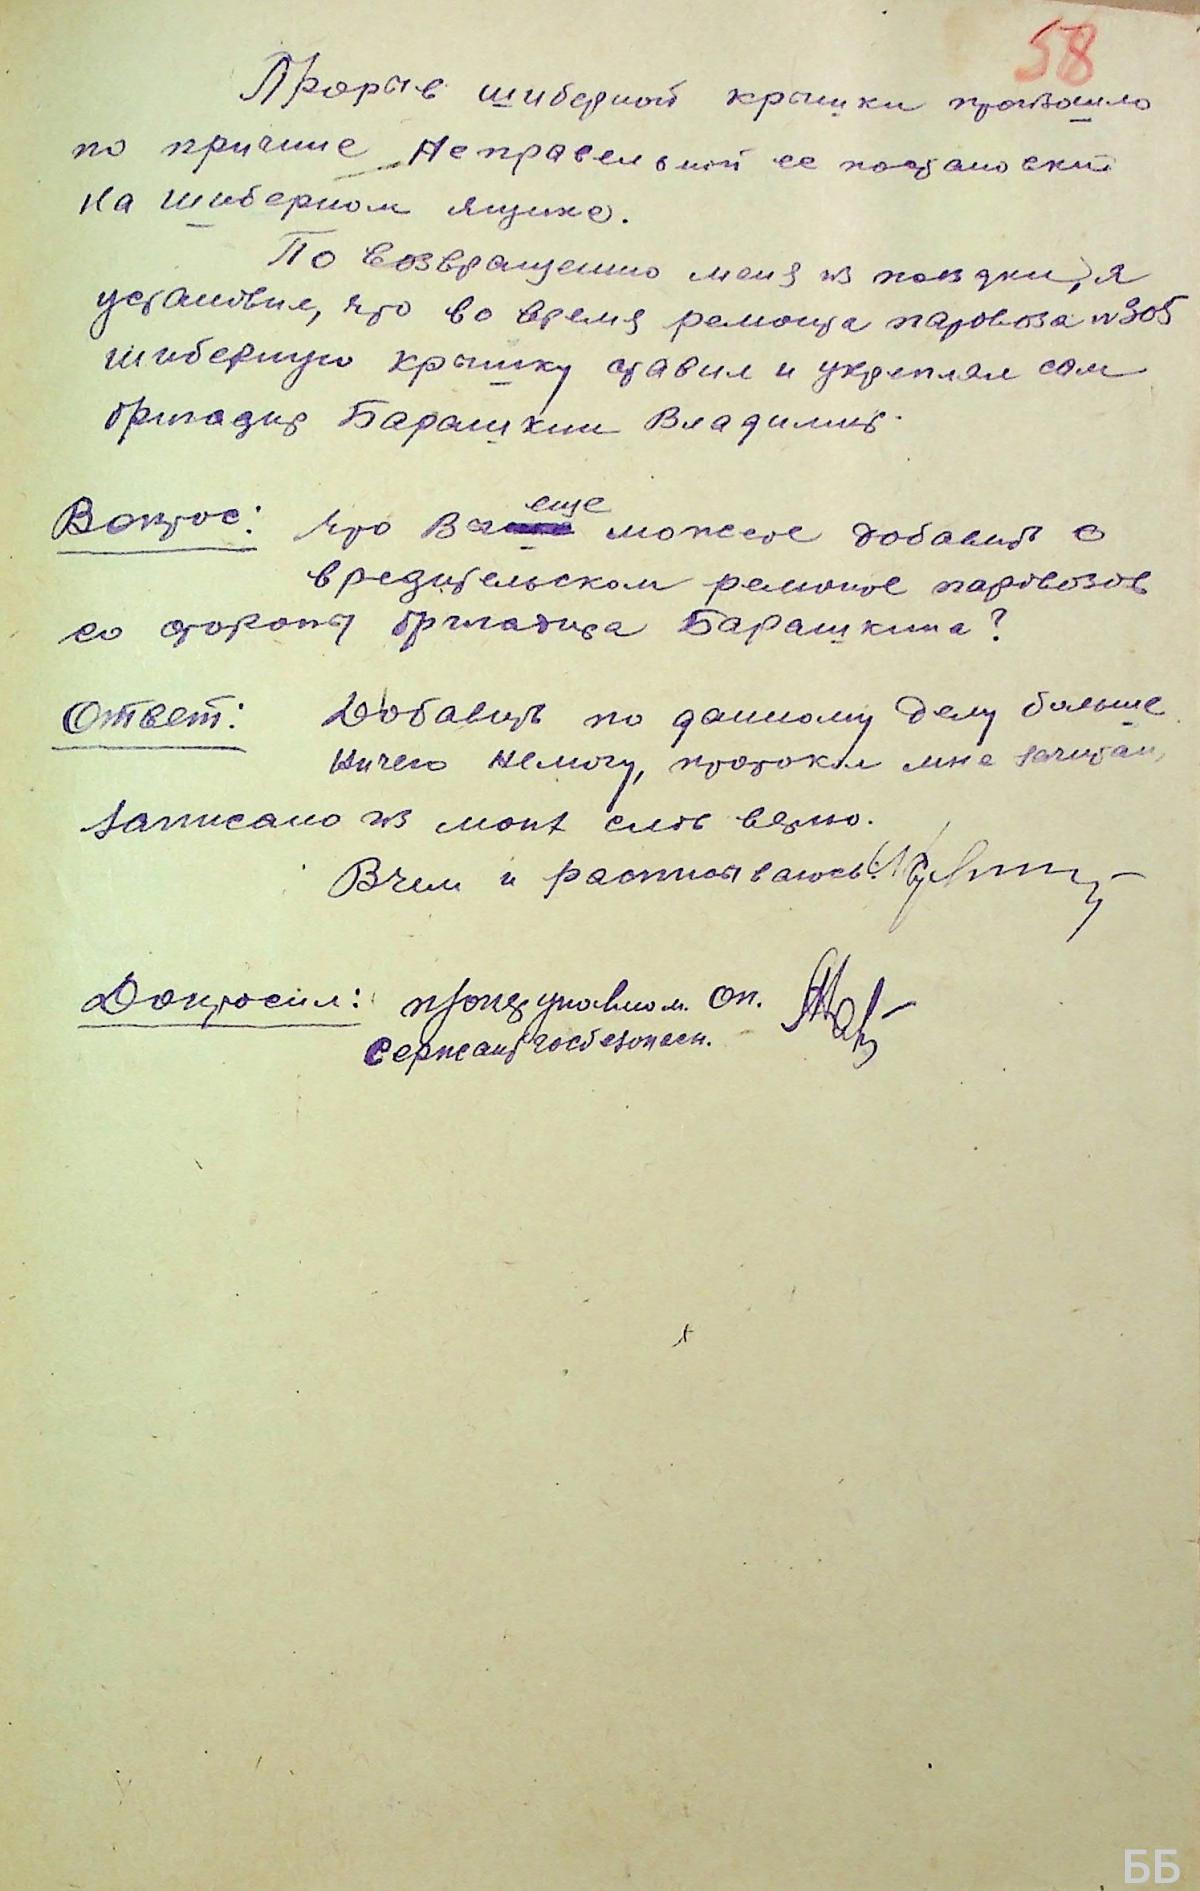 58
Прорыв шиберной крышки произошло
по причине неправельной ее постановки
на шиберном ящике.
По возвращению меня из поездки, я
установил, что во время ремонта паровоза №305
шиберную крышку ставил и укреплял сам
бригадир Барашкин Владимир.
Вопрос: Что Вы еще можете добавить о
вредительском ремонте паровозов
со стороны бригадира Барашкина?
Ответ: Добавить по данному делу больше
ничего немогу, протокол мне зачитан,
записано из моих слов верно.
В чем и расписываюсь:
Допросил: уполном. оп.
сержант госбезопасн.
ББ